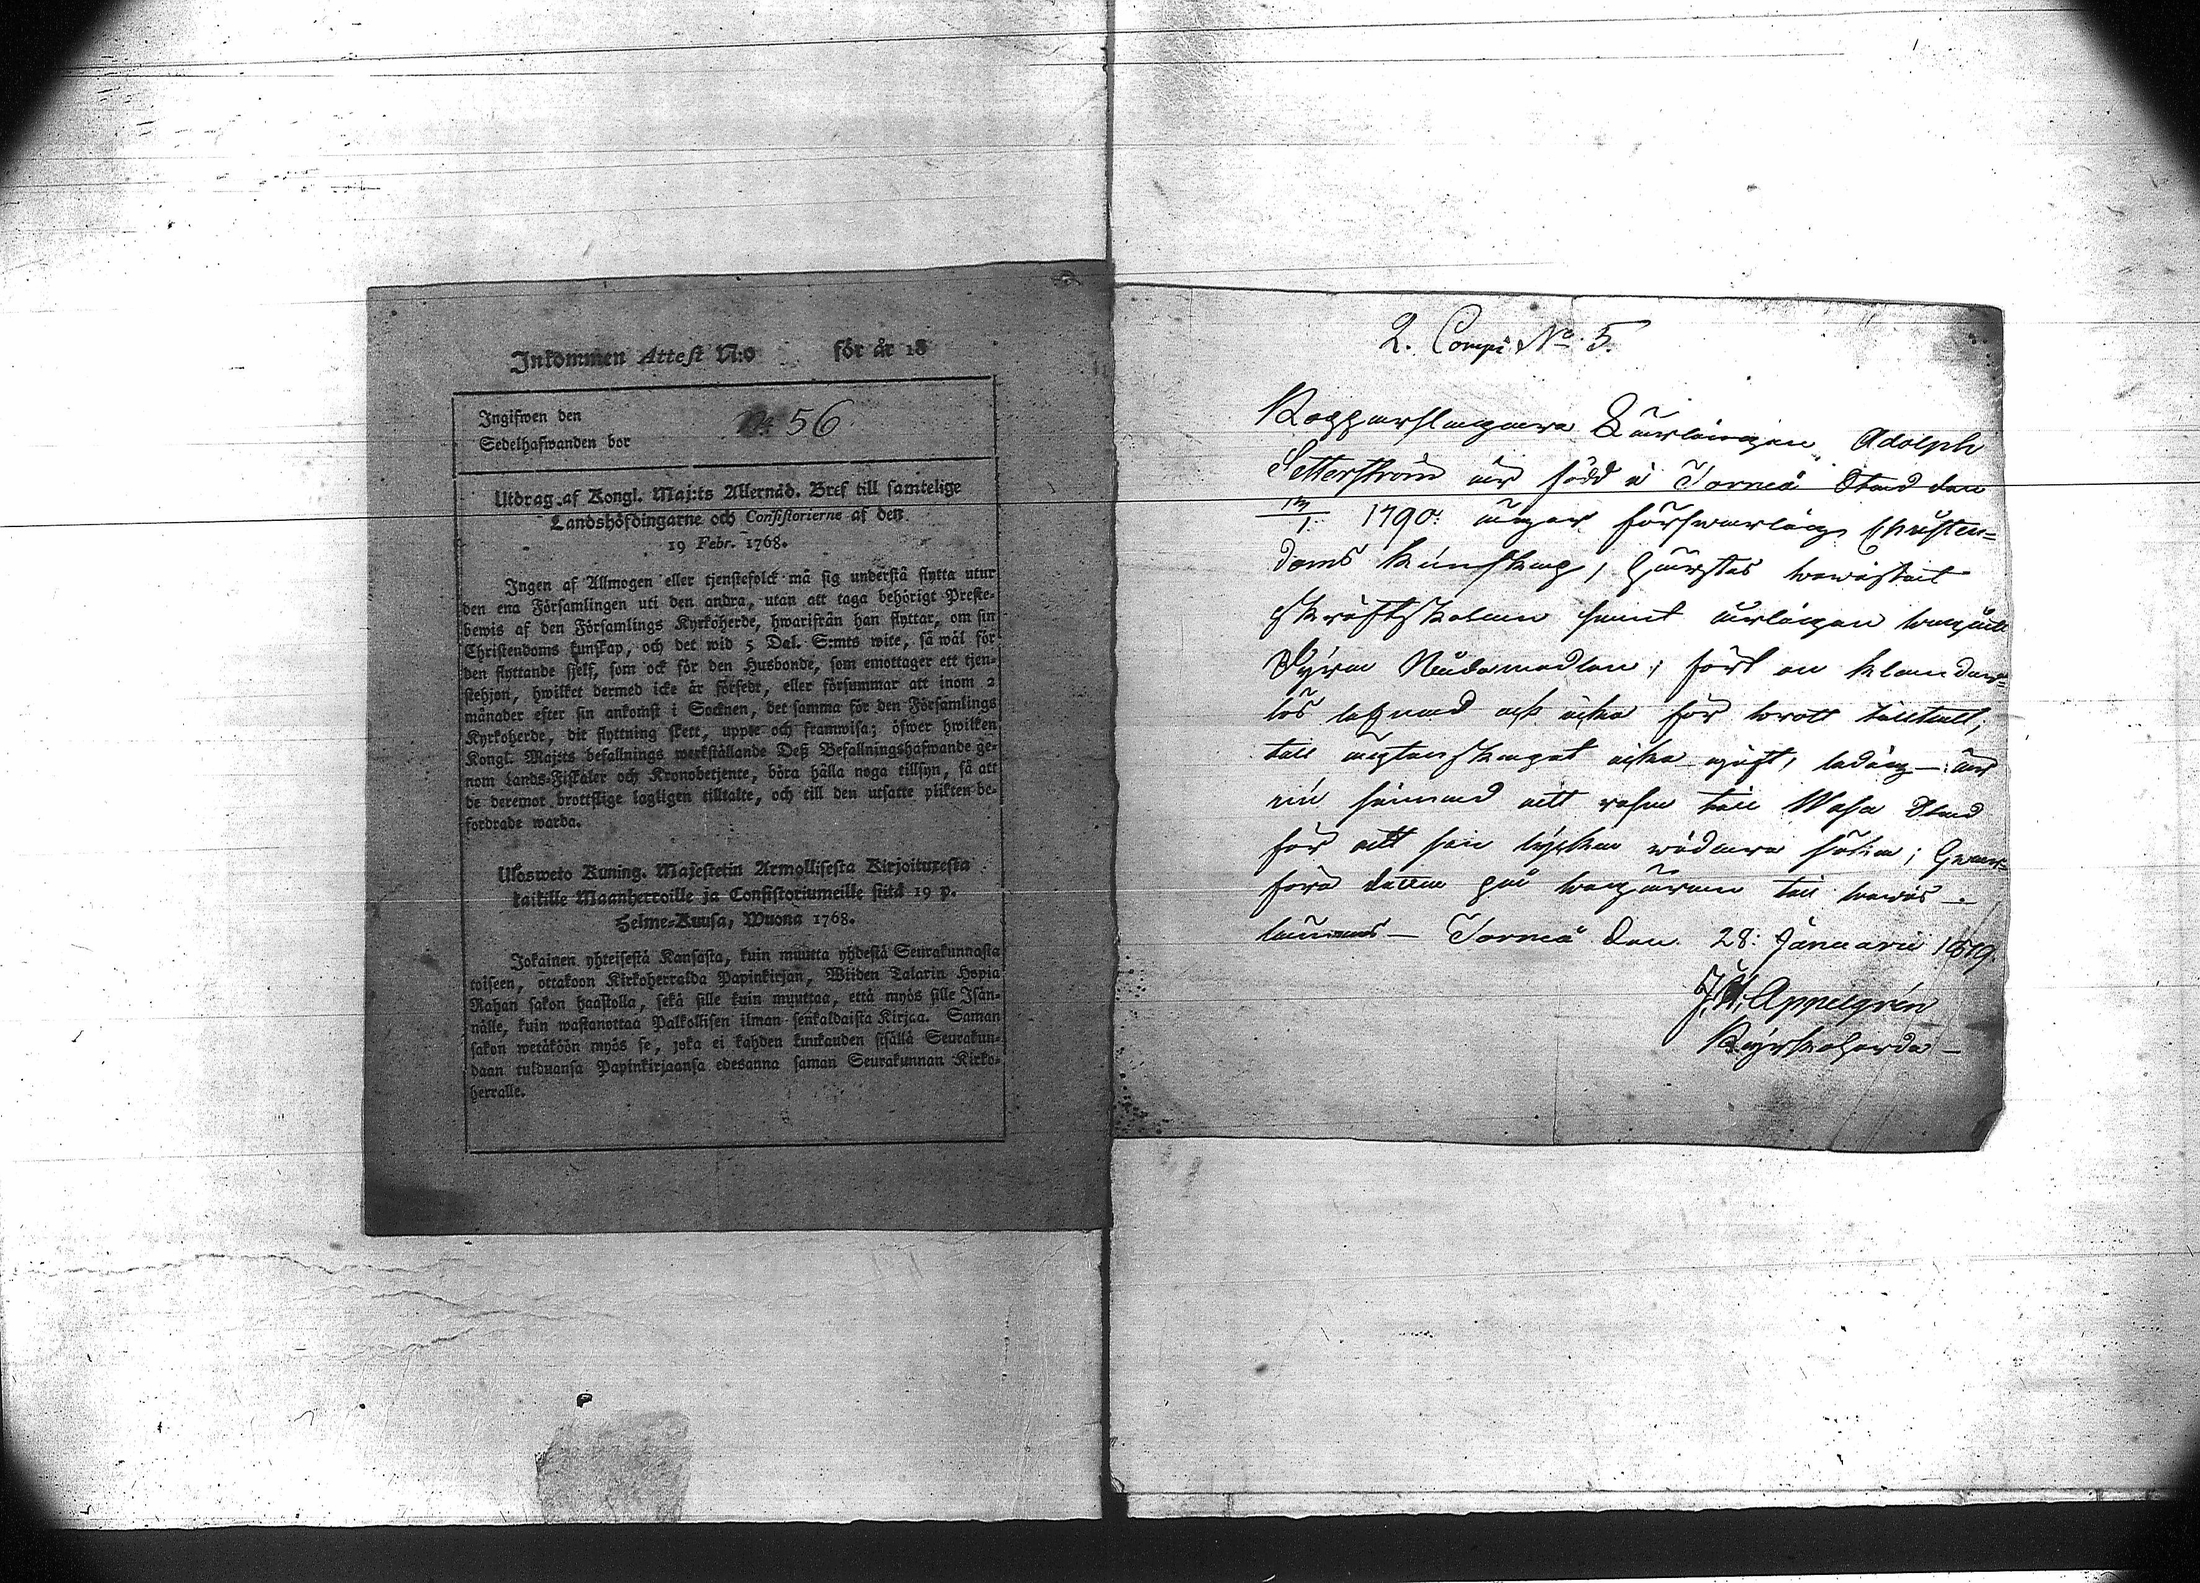 Inkommen Attest N:o för år 18
Ingifwen den
Sedelhafwanden bor
No 56
Utdrag af Kongl. Maj:ts Allernåd. Bref till samtelige
Landshöfdingarne och Consistorierne af den
19 Febr. 1768.
Ingen af Allmogen eller tjenstefolck må sig understå flytta utur
den ena Församlingen uti den andra, utan att taga behörigt Preste-
bewis af den Församlings Kyrkoherde, hwarifrån han flyttar, om sin
Christendoms kunskap, och det wid 5 Dal. S:mts wite, så wäl för
den flyttande sjelf, som ock för den Husbonde, som emottager ett tjen-
stehjon, hwilket dermed icke är försedt, eller försummar att inom 2
månader efter sin ankomst i Socknen, det samma för den Församlings
Kyrkoherde, dit flyttning skett, uppte och framwisa; öfwer hwilken
Kongl. Maj:ts befallnings werkställande Deß Befallningshafwande ge-
nom Lands-Fiskaler och Kronobetjente, böra hålla noga tillsyn, så att
de deremot brottslige lagligen tilltalte, och till den utsatte plikten be-
fordrade warda.
Ulosweto Kuning. Majestetin Armollisesta Kirjoituxesta
kaikille Maanherroille ja Consistoriumeille siitä 19 p.
Helme-Kuusa, Wuona 1768.
Jokainen yhteisestä Kansasta, kuin muutta yhdestä Seurakunnasta
toiseen, ottakoon Kirkoherralda Papinkirjan, Wiiden Talarin Hopia
Rahan sakon haastolla, sekä sille kuin muuttaa, että myös sille Isän-
nälle, kuin wastanottaa Palkollisen ilman senkaldaista Kirjaa. Saman
sakon wetäköön myös se, joka ei kahden kuukauden sisällä Seurakun-
daan tulduansa Papinkirjaansa edesanna saman Seurakunnan Kirko-
herralle.
2. Comp: No 5.
Kopparslagare Lärlingen Adolph
Setterström är född i Torneå Stad den
1790: äger förswarlig Christen-
doms kunskap, hewistat
skriftskolan samt ärligen begått
Dyra Nådamedlen; fört en klander-
lös lefnad och icke för brott tilltalt,
till ägtenskapet icke gift, ledig är
nu sinnad att resa till Wasa Stad
för att sin lycka widare söka;
före detta på begäran till bewis
lemnas Torneå den 28: Januarii 1819.
Appelgrén
Kyrkoherde